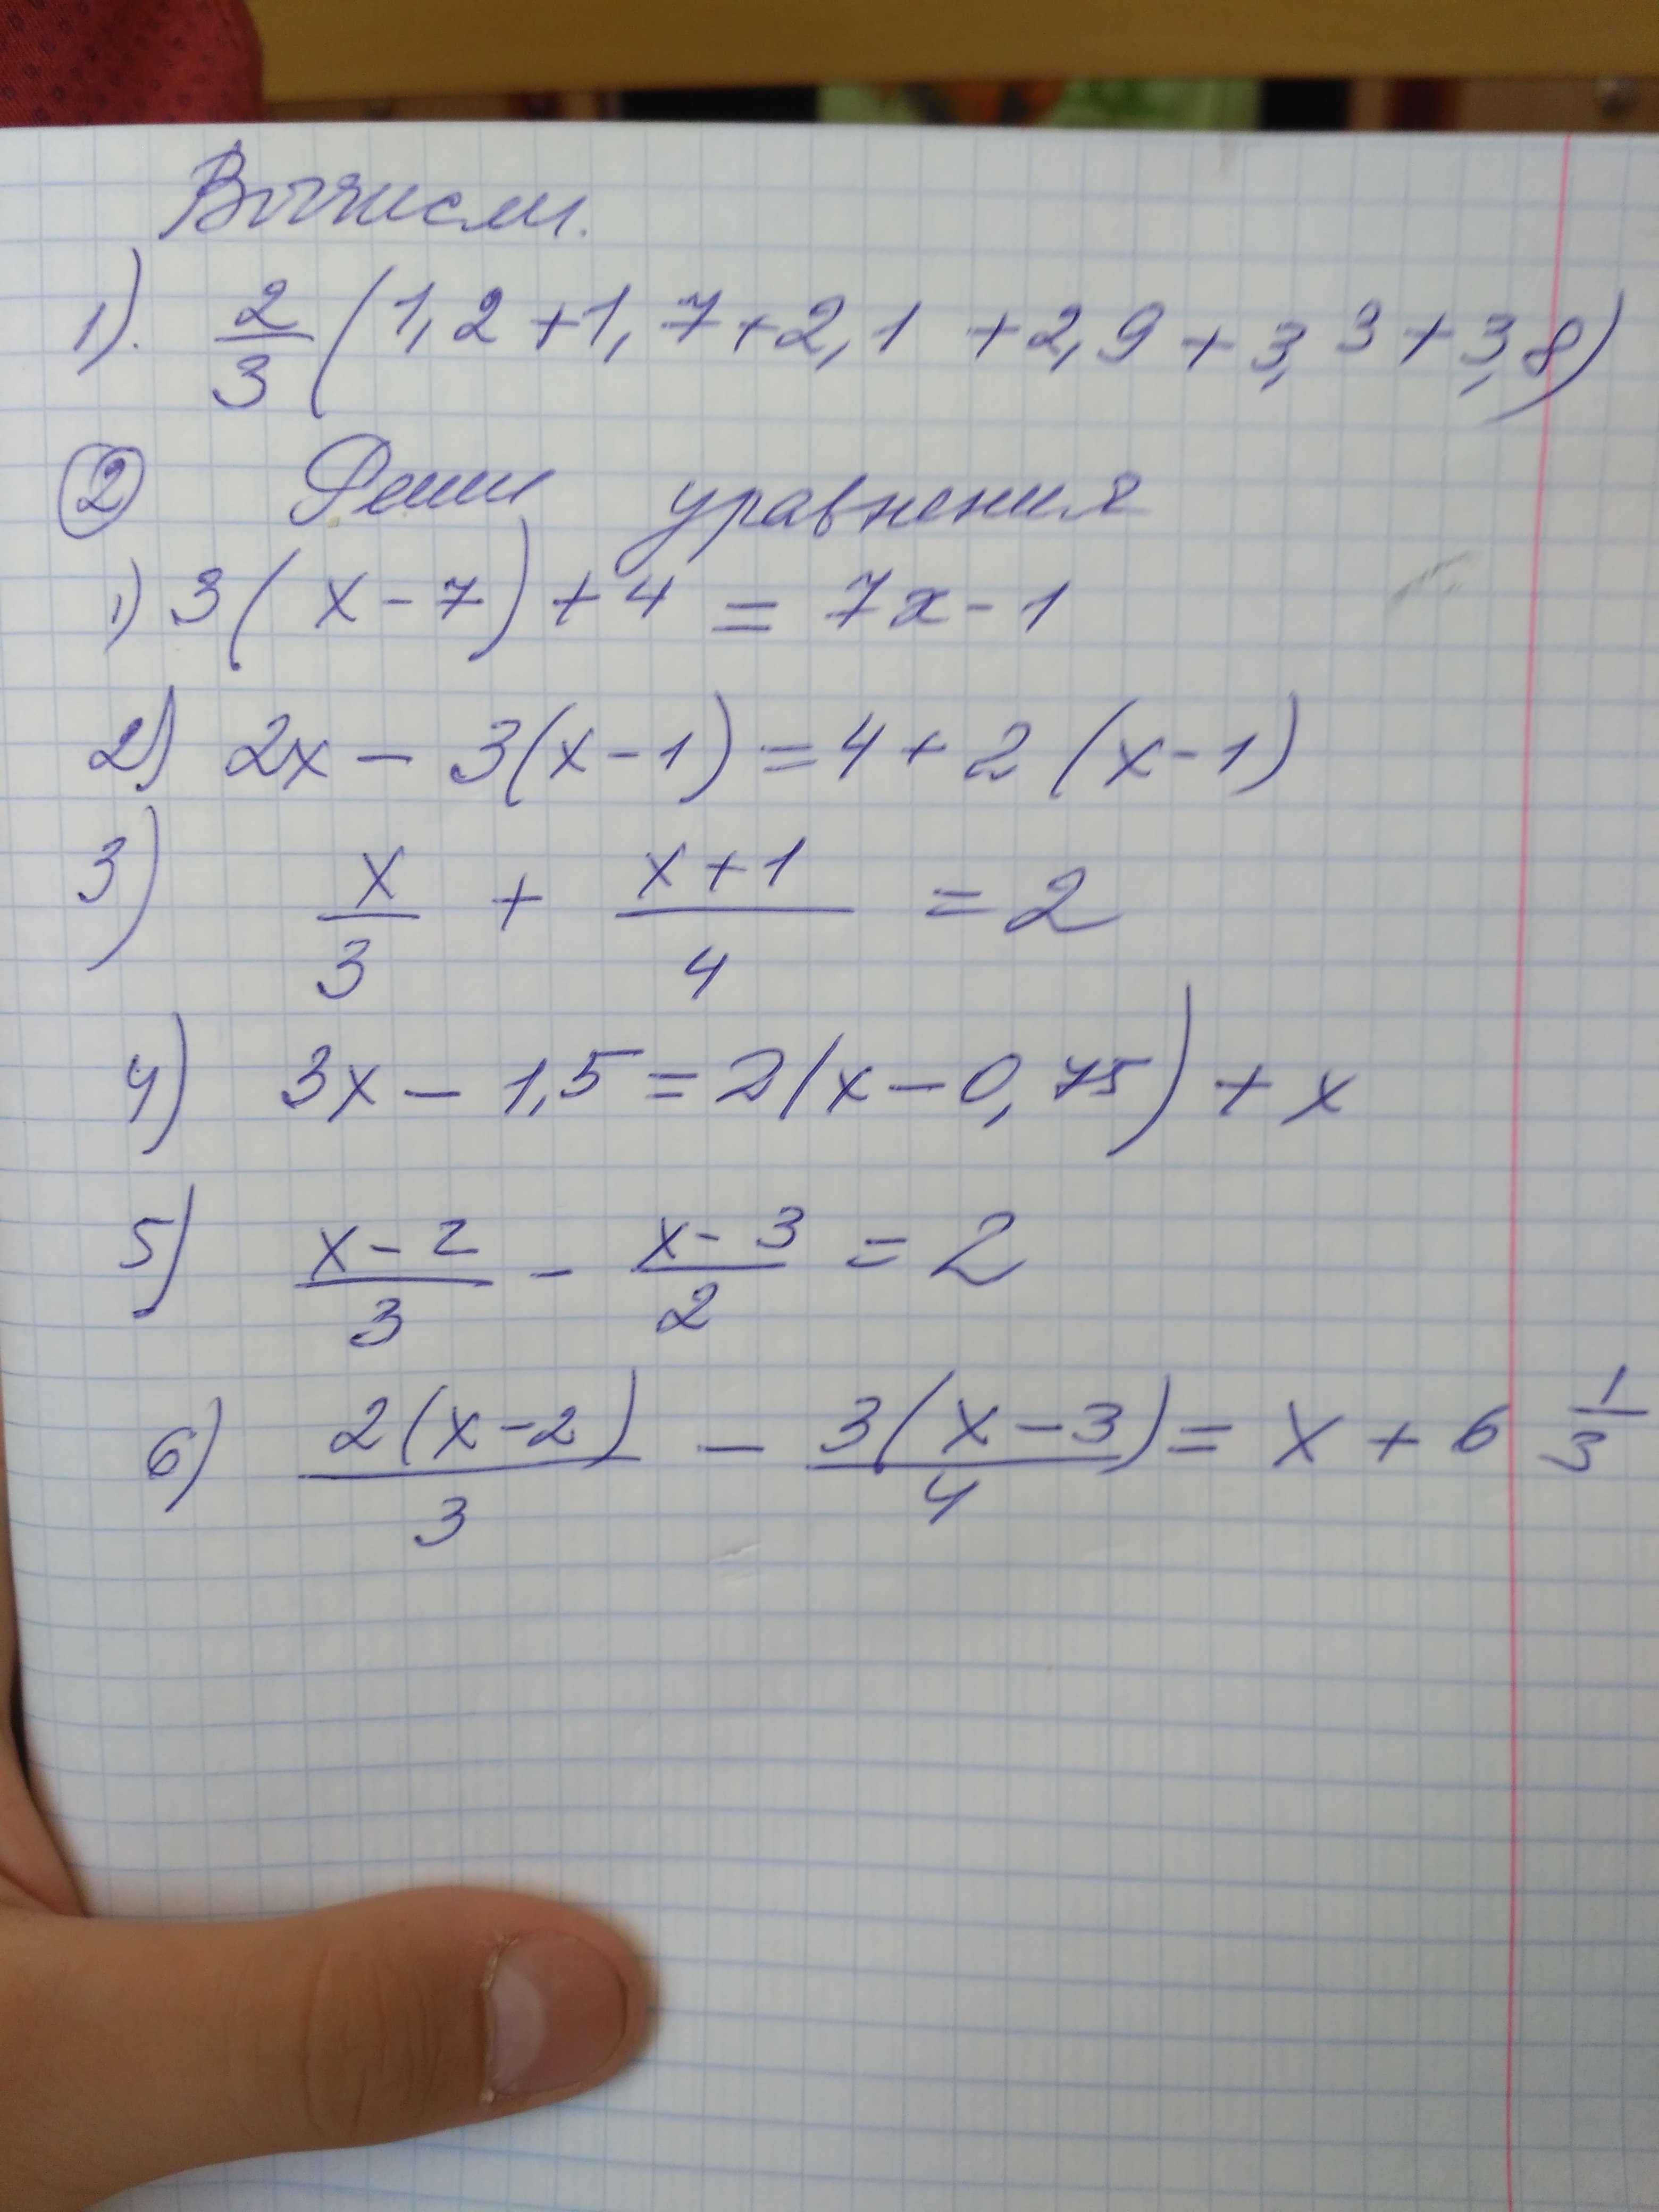 Вычисли.
1). 2/3 (1,2+1,7+2,1 +2,9+3,3+3,8)
② Реши уравнения
1) 3(x-7)+4 = 7x-1
2) 2x - 3(x-1)=4+2(x-1)
3) x/3 + (x+1)/4 = 2
4) 3x - 1,5 = 2(x-0,75)+x
5) (x-2)/3 - (x-3)/2 = 2
6) 2(x-2)/3 - 3(x-3)/4 = x + 6 1/3